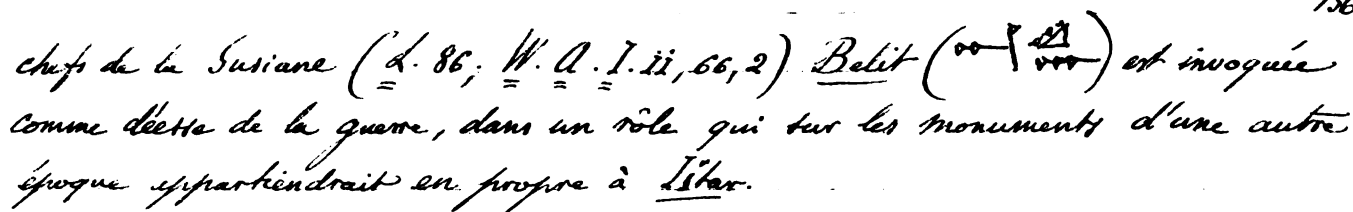 156
chefs de la Susiane (L. 86; W. A. I. ii, 66, 2) Belit () est invoquée
comme déesse de la guerre, dans un rôle qui sur les monuments d'une autre
époque appartiendrait en propre à Istar.